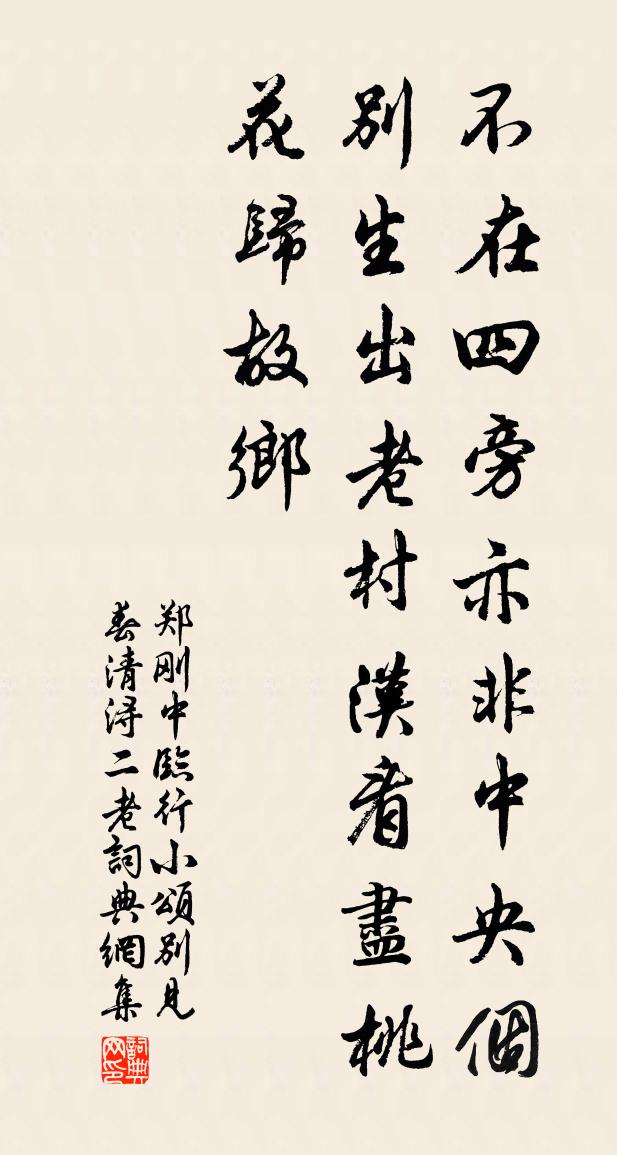 不在四旁亦非中央個
別生出老村漢看盡桃
花歸故鄉
郑刚中臨行小頌別見
春清浔二老詞典網集
詞典网印